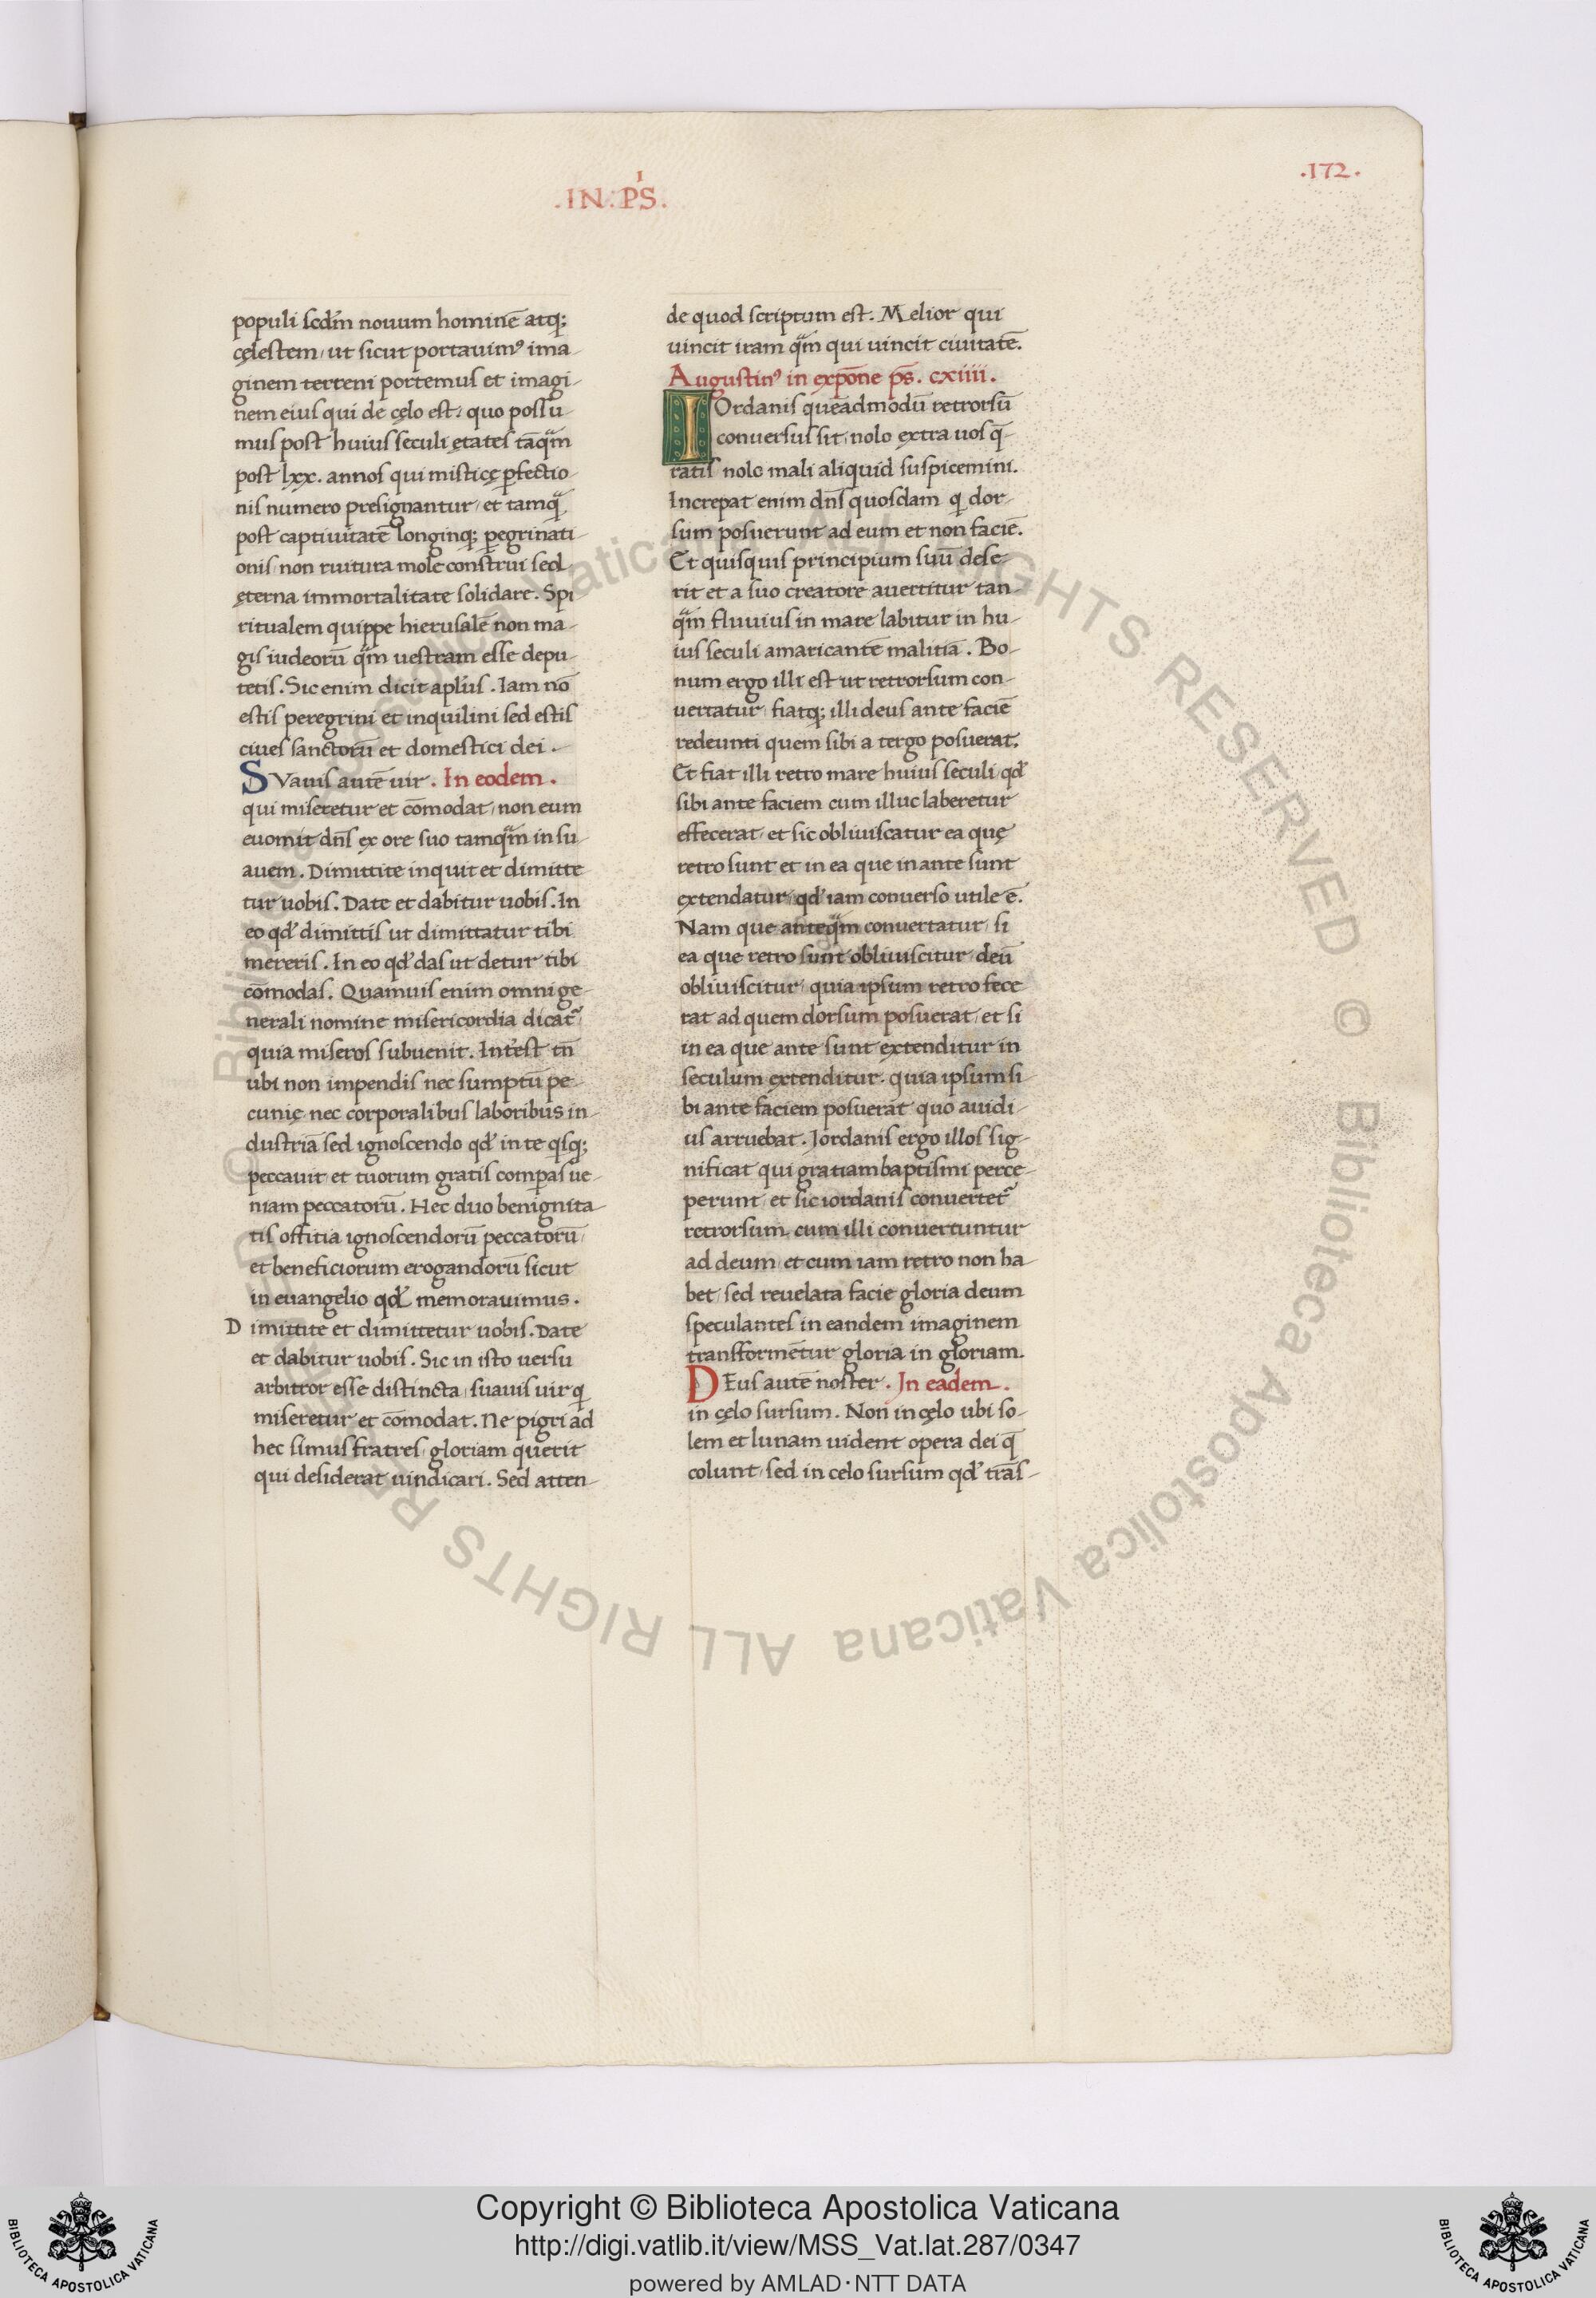 .172.
.IN. PS.
populi scdm nouum hominē atq;
cęlestem, ut sicut portauimꝰ ima-
ginem terreni portemus et imagi-
nem eius qui de cęlo est, quo possu-
mus post huius seculi ętates tāqm
post lxx. annos qui misticę ꝑfectio-
nis numero presignantur, et tamq
post captiuitatē longinq; ꝑegrinati-
onis, non ruitura mole construi, sed
ęterna immortalitate solidare. Spi
ritualem quippe hierusalē non ma-
gis iudeorū qm uestram esse depu-
tetis. Sic enim dicit aplus. Iam nō
estis peregrini et inquilini sed estis
ciues sanctorū et domestici dei.
SVauis autē uir. In eodem.
qui miseretur et cōmodat, non eum
euomit dns ex ore suo tamqm insu-
auem. Dimittite inquit et dimitte
tur uobis. Date et dabitur uobis. In
eo qd dimittis ut dimittatur tibi
mereris. In eo qd das ut detur tibi
cōmodas. Quamuis enim omni ge-
nerali nomine misericordia dicat
quia miseros subuenit. Intest tn
ubi non impendis nec sumptū pe-
cunię nec corporalibus laboribus in-
dustriā sed ignoscendo qd in te qsq;
peccauit et tuorum gratis compas ue-
niam peccatorū. Hec duo benignita-
tis offitia ignoscendorū peccatorū
et beneficiorum erogandorū sicut
in euangelio qd memorauimus.
Dimittite et dimittetur uobis. Date
et dabitur uobis. Sic in isto uersu
arbitror esse distincta, suauis uir q
miseretur et cōmodat. Ne pigri ad
hec simus fratres, gloriam querit
qui desiderat uindicari. Sed atten-
de quod scriptum est. Melior qui
uincit iram qm qui uincit ciuitatē.
Augustinꝰ in expōne ps. cxiiii.
IOrdanis quēadmodū retrorsū
conuersus sit, nolo extra uos q-
ratis nolo mali aliquid suspicemini.
Increpat enim dns quosdam q dor-
sum posuerunt ad eum et non faciē.
Et quisquis principium suū dese-
rit et a suo creatore auertitur tan-
qm fluuius in mare labitur in hu-
ius seculi amaricantē malitiā. Bo-
num ergo illi est ut retrorsum con-
uertatur, fiatq; illi deus ante faciē
redeunti quem sibi a tergo posuerat.
Et fiat illi retro mare huius seculi, qd
sibi ante faciem cum illuc laberetur
effecerat, et sic obliuiscatur ea quę
retro sunt et in ea que in ante sunt
extendatur, qd iam conuerso utile ē.
Nam que anteqm conuertatur, si
ea que retro sunt obliuiscitur, deū
obliuiscitur, quia ipsum retro fece
rat ad quem dorsum posuerat, et si
in ea que ante sunt extenditur in
seculum extenditur. quia ipsum si-
bi ante faciem posuerat quo auidi-
us arruebat. Jordanis ergo illos sig-
nificat qui gratiam baptismi perce-
perunt, et sic iordanis conuertet
retrorsum, cum illi conuertuntur
ad deum, et cum iam retro non ha-
bet, sed reuelata facie gloria deum
speculantes in eandem imaginem
transformētur gloria in gloriam.
DEus autē noster. In eadem.
in cęlo sursum. Non in cęlo ubi so-
lem et lunam uident opera dei q
colunt, sed in celo sursum qd trās-
© Biblioteca Apostolica Vaticana ALL RIGHTS RESERVED © Biblioteca Apostolica Vaticana ALL RIGHTS RESERVED
Copyright © Biblioteca Apostolica Vaticana
http://digi.vatlib.it/view/MSS_Vat.lat.287/0347
powered by AMLAD·NTT DATA
BIBLIOTECA APOSTOLICA VATICANA
BIBLIOTECA APOSTOLICA VATICANA